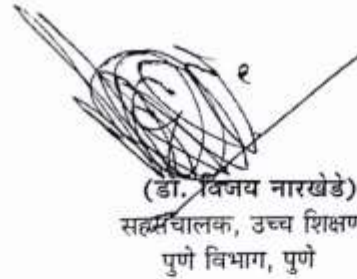 (डॉ. विजय नारखेडे)
सहसंचालक, उच्च शिक्षण
पुणे विभाग, पुणे